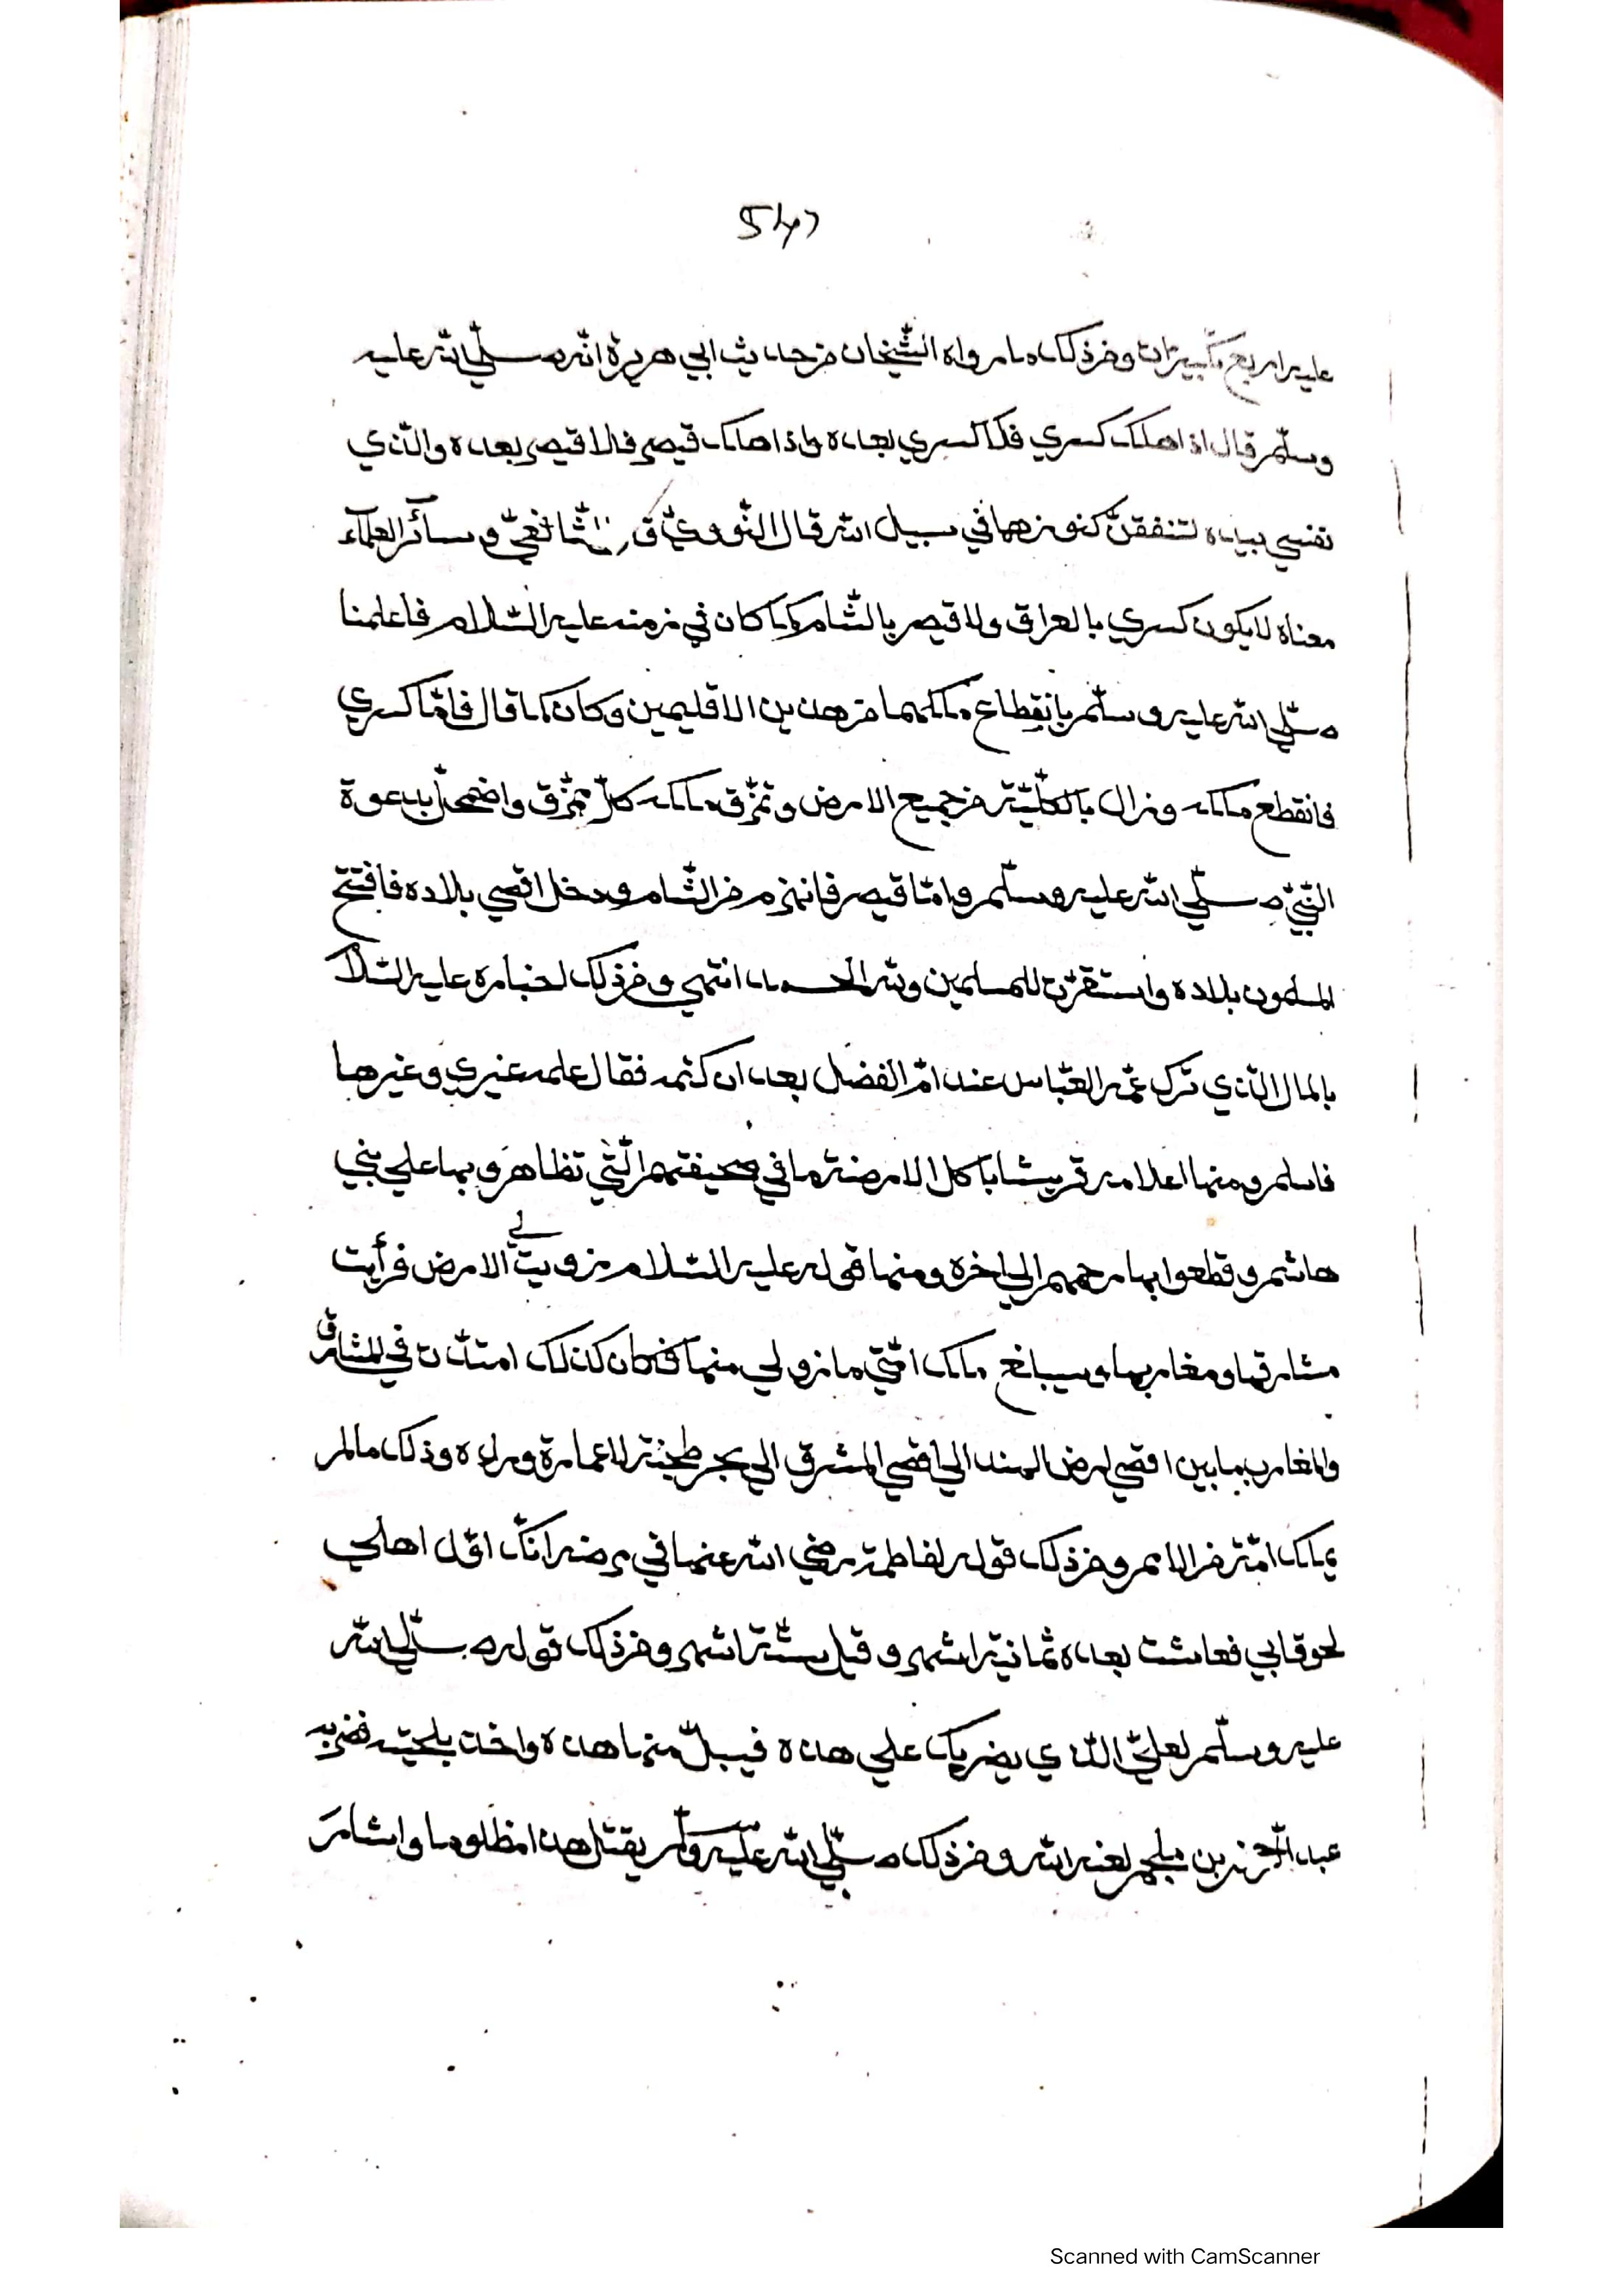 547
عليه اربع تكبيرات ومن ذلك ما رواه الشّيخان من حديث ابي هريرة انّه صلّي الله عليه
وسلّم قال اذا هلك كسري فلا كسري بعده واذا هلك قيصر فلا قيصر بعده والّذي
نفسي بيده لتنفقنّ كنوزهما في سبيل الله قال النّوويّ قال الشّافعيّ وسآئر العلمآء
معناه لا يكون كسري بالعراق ولا قيصر بالشّام كما كان في زمنه عليه السّلام فاعلمنا
صلّي الله عليه وسلّم بانقطاع ملكهما من هذين الاقليمين وكان كما قال فامّا كسري
فانقطع ملكه وزال بالكلّيّة من جميع الارض وتمزّق ملكه كلّ ممزّق واضمحلّ بدعوة
النّبيّ صلّي الله عليه وسلّم وامّا قيصر فانهزم من الشّام ودخل اقصي بلاده فافتتح
المسلمون بلاده واستقرّت للمسلمين ولله الحمد انتهي ومن ذلك اخباره عليه السّلا
بالمال الّذي ترك عمّه العبّاس عند امّ الفضل بعد ان كتمه فقال علمه غيري وغيرها
فاسلم ومنها اعلامه قريشا باكل الارضة ما في صحيفتهم الّتي تظاهروا بها علي بني
هاشم وقطعوا بها رحمهم الي اخره ومنها قوله عليه السّلام زويت لي الارض فرأيت
مشارقها ومغاربها وسيبلغ ملك امّتي ما زوي لي منها فكان كذلك امتدّت في المشارق
والمغارب ما بين اقصي ارض الهند الي اقصي المشرق الي بحر طنجة لا عمارة وراءه وذلك ما لم
يملك امّة من الامم ومن ذلك قوله لفاطمة رضي الله عنها في مرضه انّك اوّل اهلي
لحوقا بي فعاشت بعده ثمانية اشهر و قيل ستّة اشهر ومن ذلك قوله صلّي الله
عليه وسلّم لعليّ الّذي يضربك علي هذه فيبلّ منها هذه واخذ بلحيته فضربه
عبد الرّحمن بن ملجم لعنه الله ومن ذلك صلّي الله عليه وسلّم يقتل هذا مظلوما واشار
Scanned with CamScanner